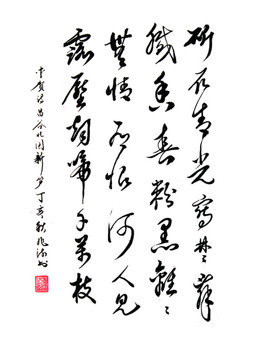 斫取青光寫楚辭
膩香春粉黑離〻
無情有恨何人見
露壓烟啼千万枝
李賀詩昌谷北园新笋丁亥秋